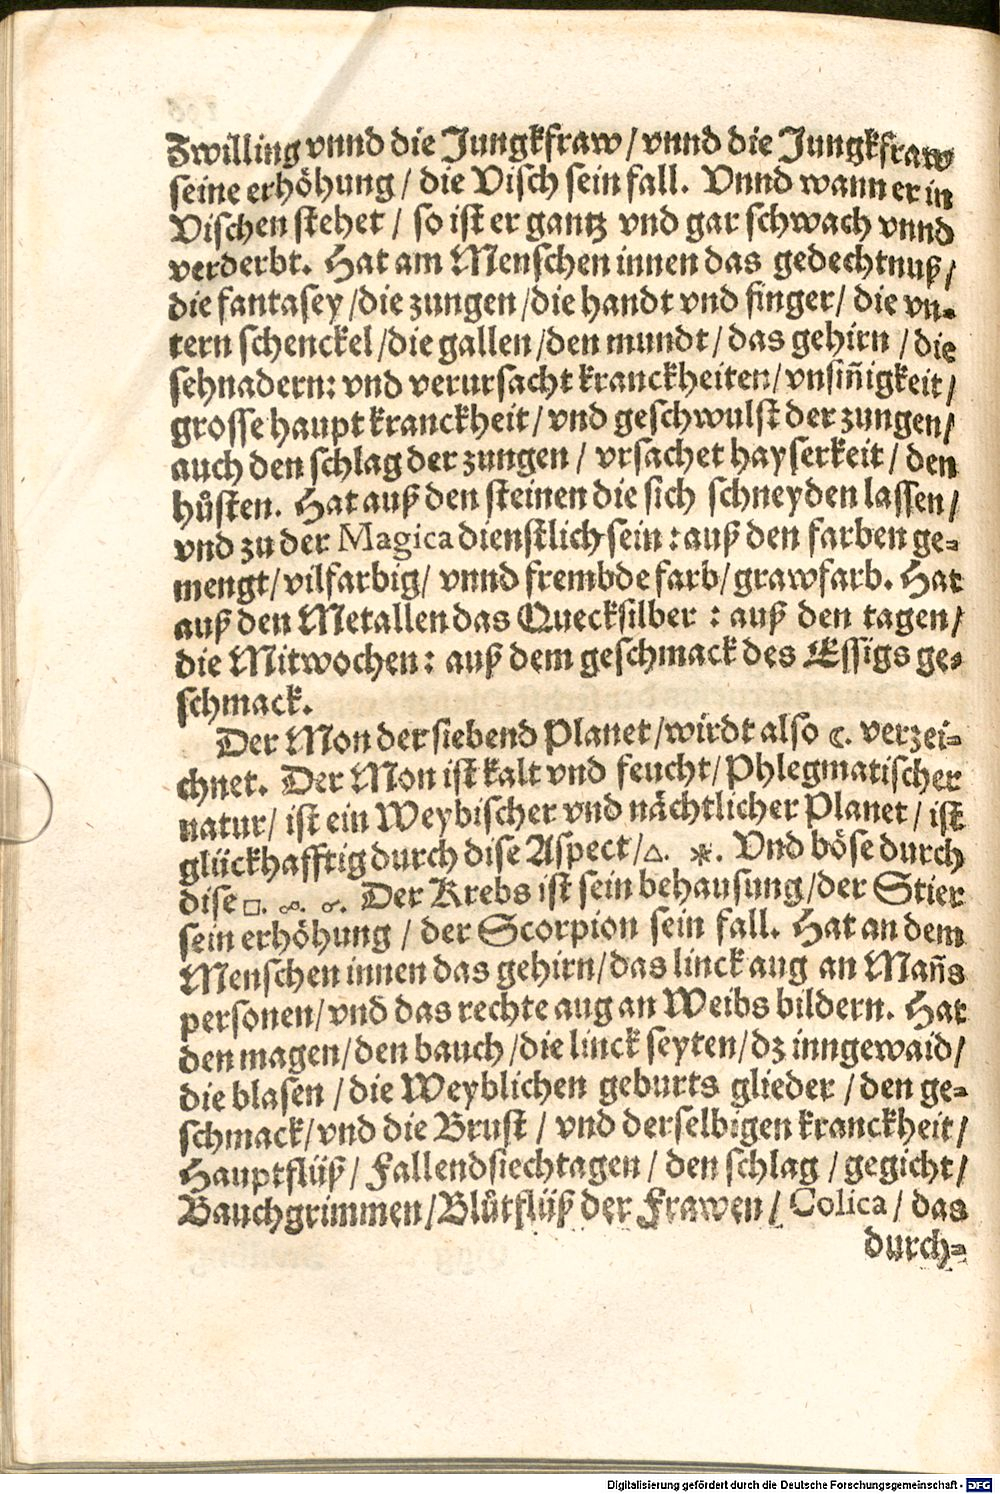 Zwilling vnnd die Jungkfraw / vnnd die Jungkfraw
seine erhöhung / die Visch sein fall. Vnnd wann er in
Vischen stehet / so ist er gantz vnd gar schwach vnnd
verderbt. Hat am Menschen innen das gedechtnuß /
die fantasey / die zungen / die handt vnd finger / die vn-
tern schenckel / die gallen / den mundt / das gehirn / die
sehnadern: vnd verursacht kranckheiten / vnsiñigkeit /
grosse haupt kranckheit / vnd geschwulst der zungen /
auch den schlag der zungen / vrsachet hayserkeit / den
hůsten. Hat auß den steinen die sich schneyden lassen /
vnd zu der Magica dienstlich sein : auß den farben ge-
mengt / vilfarbig / vnnd frembde farb / grawfarb. Hat
auß den Metallen das Quecksilber : auß den tagen /
die Mitwochen : auß dem geschmack des Essigs ge-
schmack.
Der Mon der siebend Planet / wirdt also ☾. verzei-
chnet. Der Mon ist kalt vnd feucht / Phlegmatischer
natur / ist ein Weybischer vnd nächtlicher Planet / ist
glückhafftig durch dise Aspect / △. ⚹. Vnd böse durch
dise □. ☍. ☌. Der Krebs ist sein behausung / der Stier
sein erhöhung / der Scorpion sein fall. Hat an dem
Menschen innen das gehirn / das linck aug an Mañs
personen / vnd das rechte aug an Weibs bildern. Hat
den magen / den bauch / die linck seyten / dz inngewaid /
die blasen / die Weyblichen geburts glieder / den ge-
schmack / vnd die Brust / vnd derselbigen kranckheit /
Hauptflüß / Fallendsiechtagen / den schlag / gegicht /
Bauchgrimmen / Blůtflüß der Frawen / Colica / das
durch-
Digitalisierung gefördert durch die Deutsche Forschungsgemeinschaft - DFG